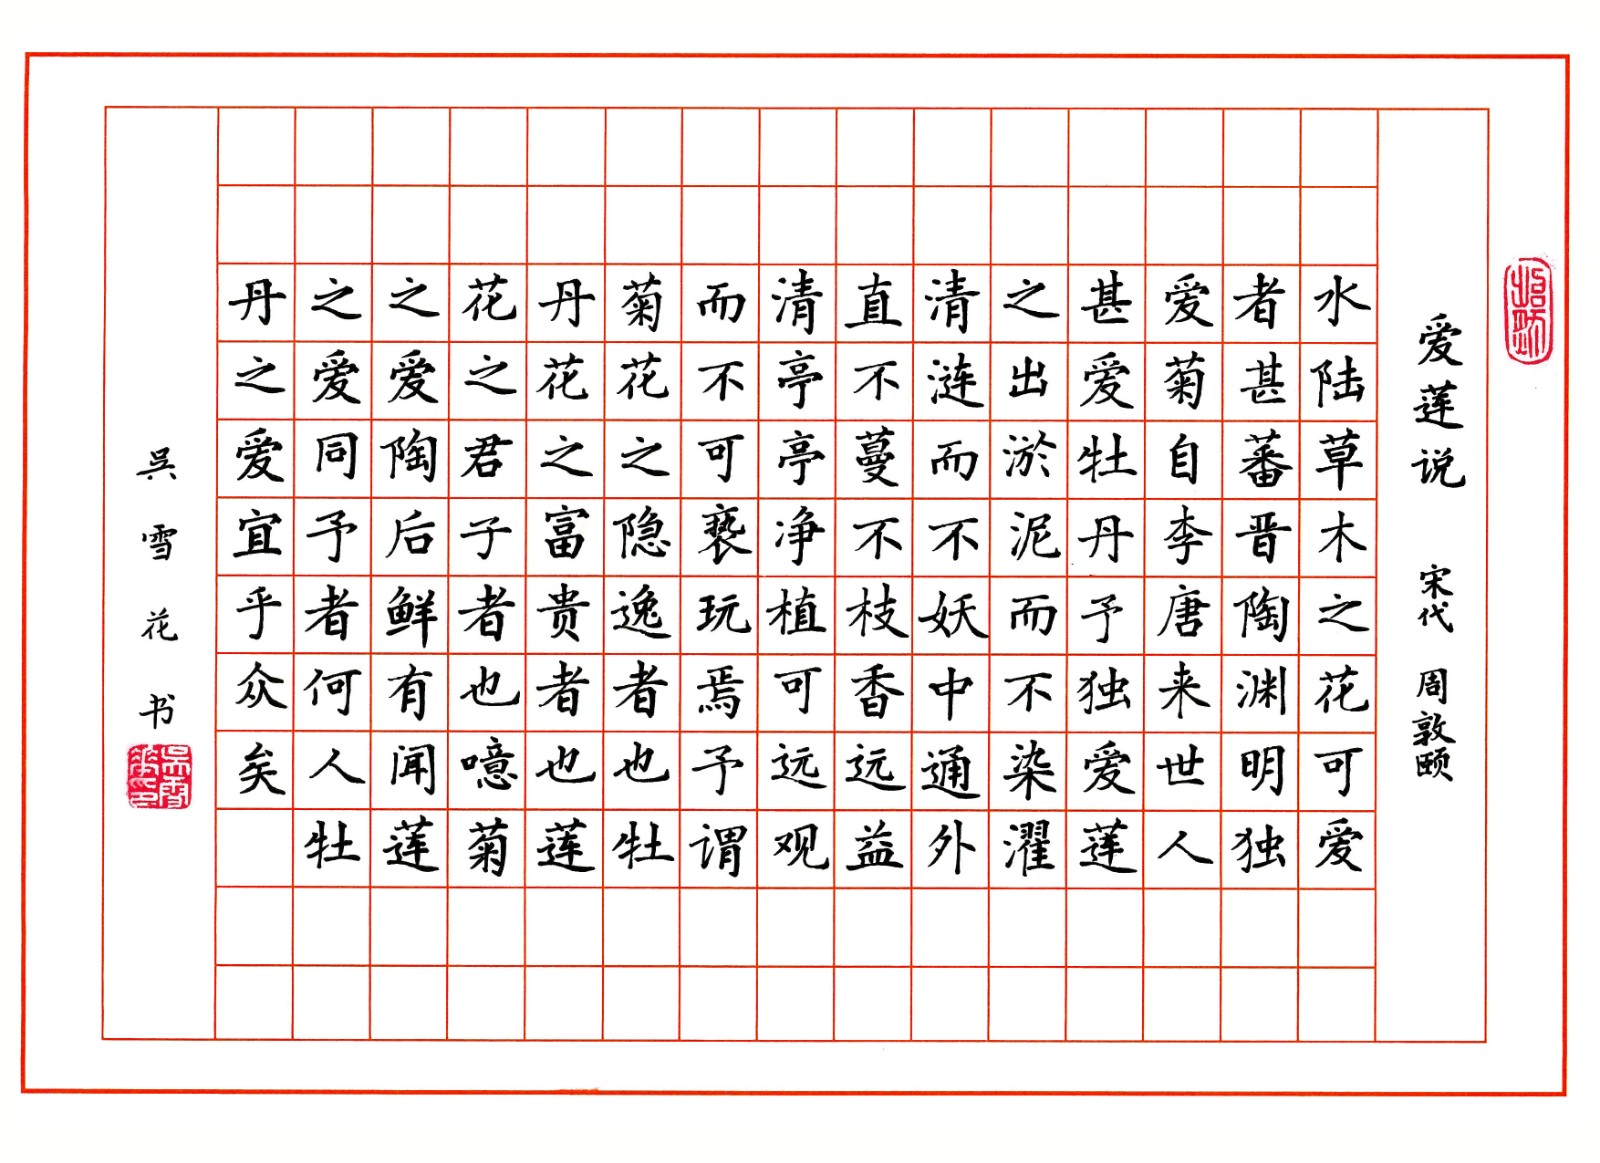 爱莲说 宋代 周敦颐
水陆草木之花可爱
者甚蕃晋陶渊明独
爱菊自李唐来世人
甚爱牡丹予独爱莲
之出淤泥而不染濯
清涟而不妖中通外
直不蔓不枝香远益
清亭亭净植可远观
而不可亵玩焉予谓
菊花之隐逸者也牡
丹花之富贵者也莲
花之君子者也噫菊
之爱陶后鲜有闻莲
之爱同予者何人牡
丹之爱宜乎众矣
吳雪花书